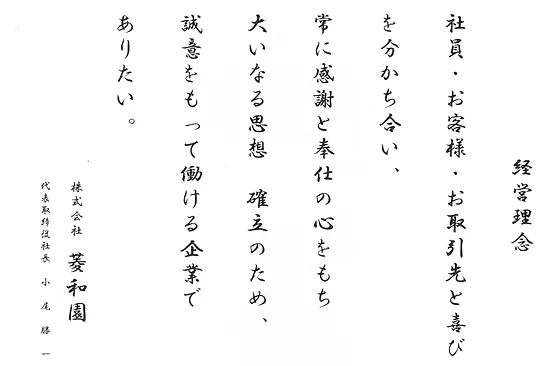 経営理念
社員・お客様・お取引先と喜び
を分かち合い、
常に感謝と奉仕の心をもち
大いなる思想　確立のため、
誠意をもって働ける企業で
ありたい。
株式会社　菱和園
代表取締役社長　小尾勝一